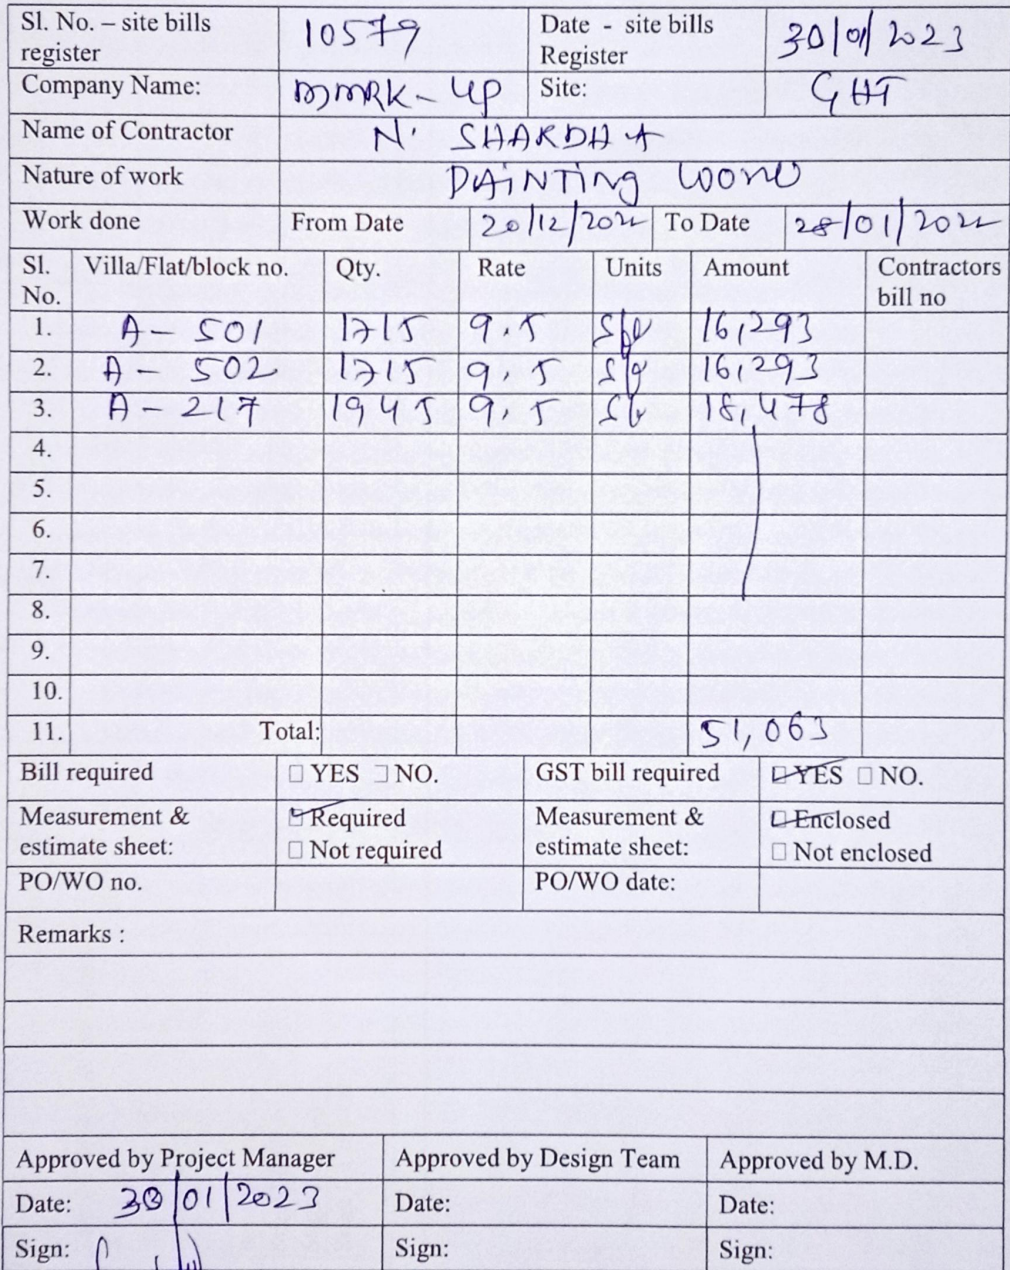 Sl. No. – site bills register 10579 Date - site bills Register 30/01/2023
Company Name: mmRK-up Site: GHT
Name of Contractor N. SHARDHA
Nature of work PAiNTing
Work done From Date 20/12/2022 To Date 28/01/2022
Sl. No. Villa/Flat/block no. Qty. Rate Units Amount Contractors bill no
1. A - 501 1715 9.5 16,293
2. A - 502 1715 9.5 16,293
3. A - 217 1945 9.5 18,478
4.
5.
6.
7.
8.
9.
10.
11. Total: 51,063
Bill required □ YES □ NO. GST bill required □ YES □ NO.
Measurement & estimate sheet: □ Required Measurement & estimate sheet: □ Enclosed
□ Not required □ Not enclosed
PO/WO no. PO/WO date:
Remarks :
Approved by Project Manager Approved by Design Team Approved by M.D.
Date: 30/01/2023 Date: Date:
Sign: Sign: Sign: